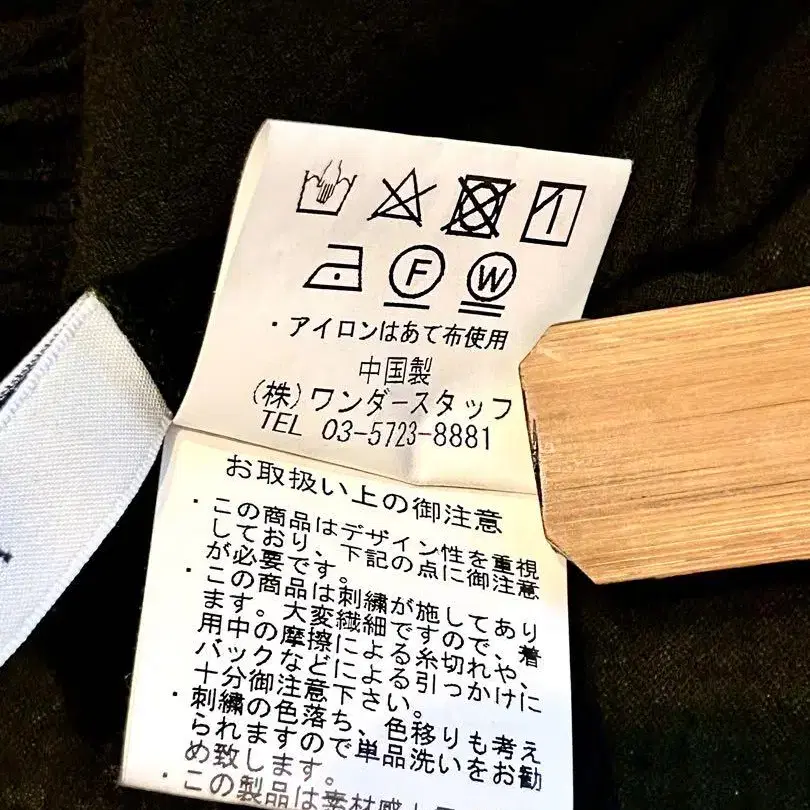 F W
・アイロンはあて布使用
中国製
(株)ワンダースタッフ
TEL 03-5723-8881
お取扱い上の御注意
・この商品はデザイン性を重視
しており、下記の点に御注意
が必要です。
・この商品は刺繍が施してあり
ます。大変繊細ですので、着
用中の摩擦による糸切れや、
バックなどによる引っかけに
十分御注意下さい。
・刺繍の色落ち、色移りも考え
られますので単品洗いをお勧
め致します。
・この製品は素材感